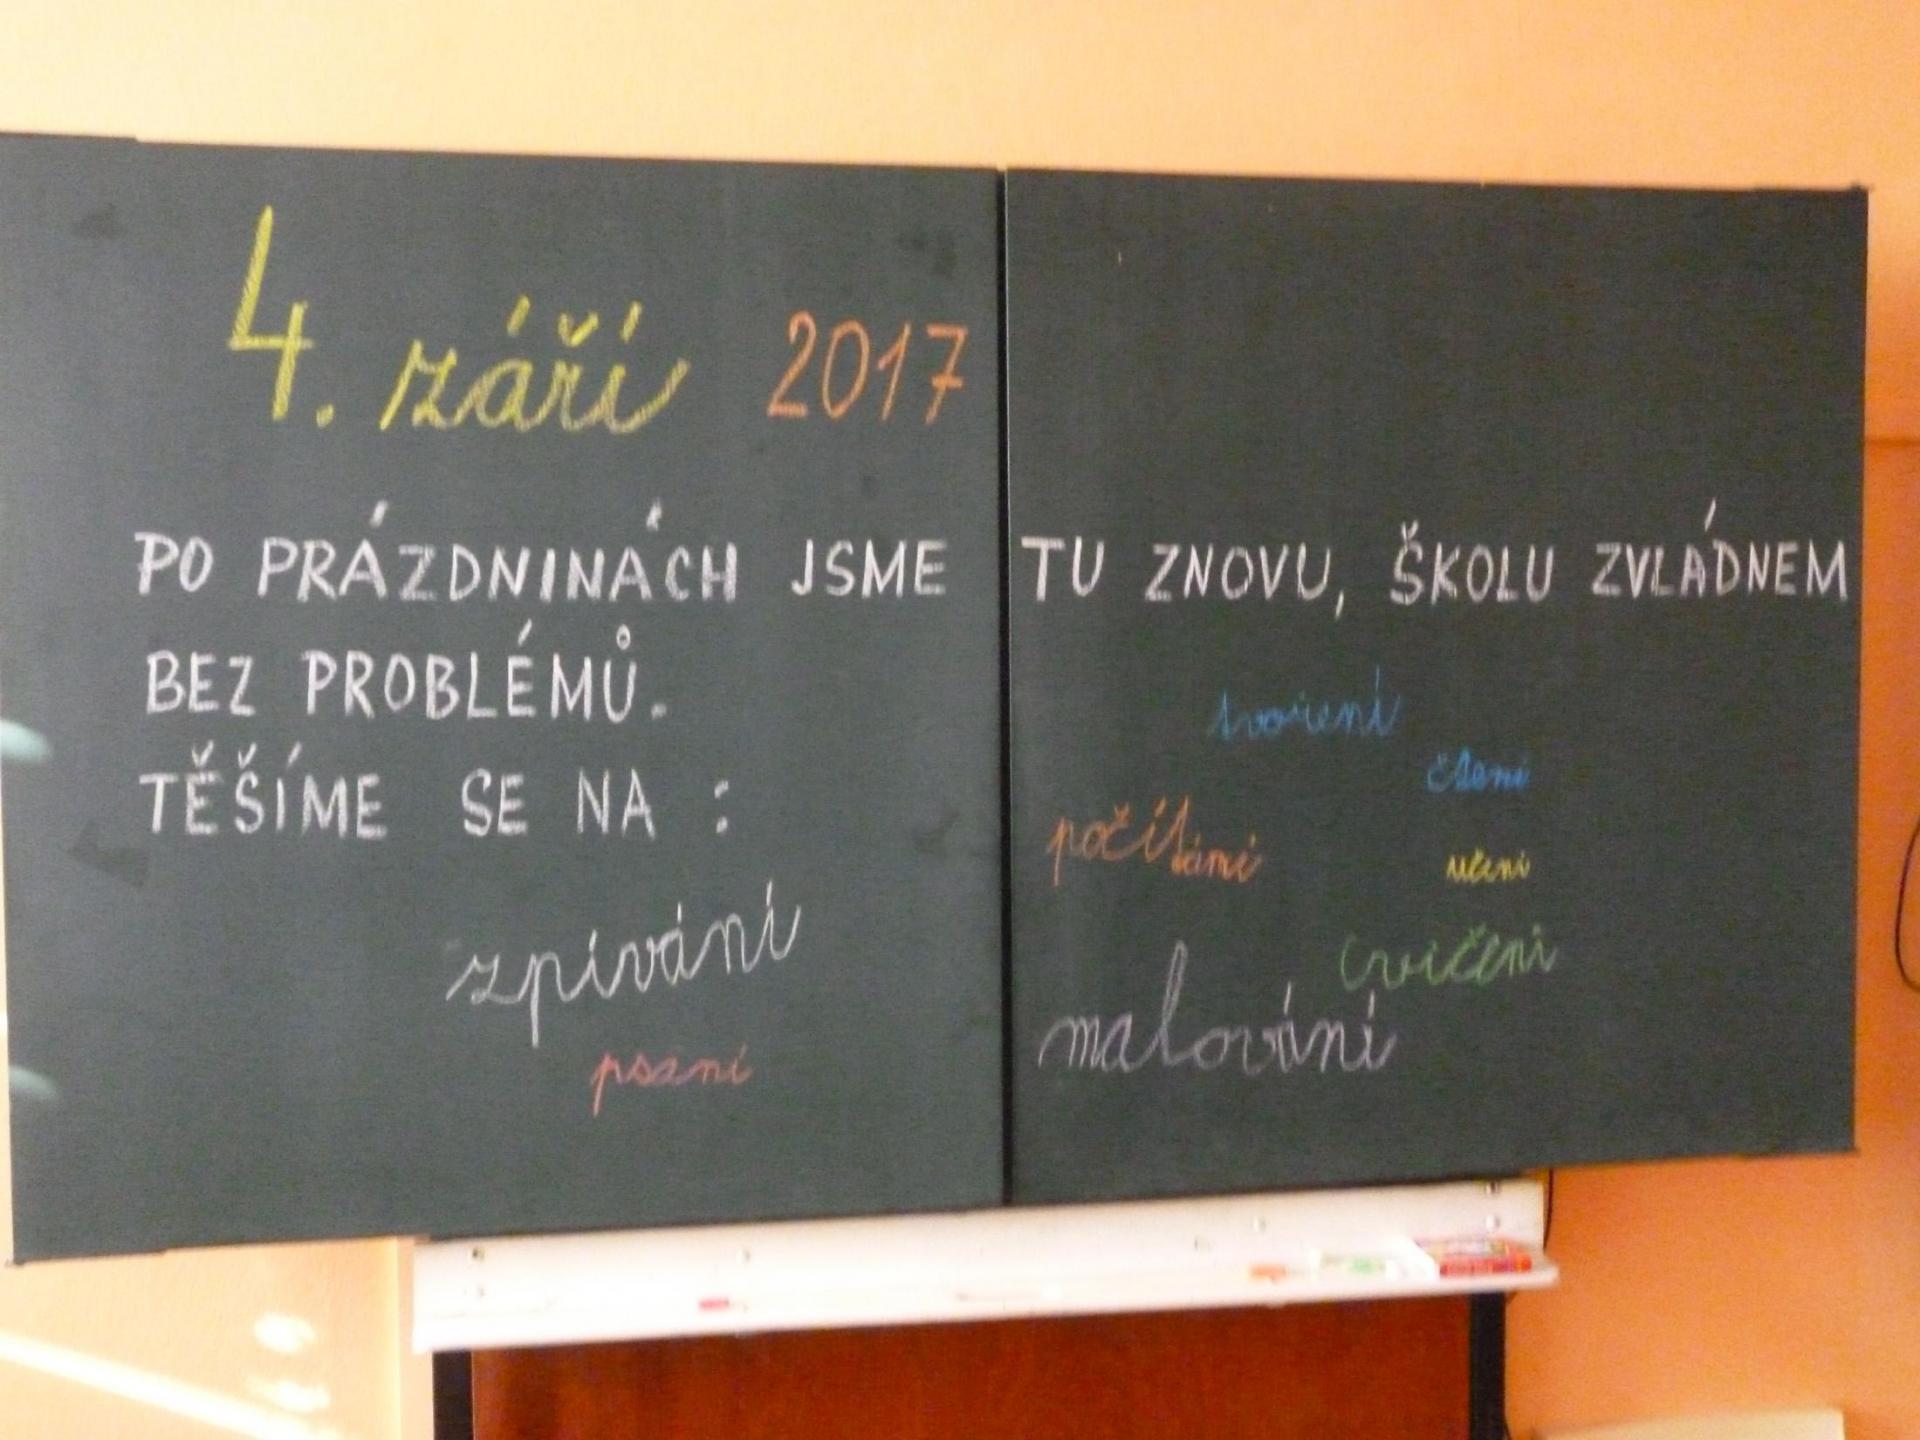 4. září 2017
PO PRÁZDNINÁCH JSME TU ZNOVU, ŠKOLU ZVLÁDNEM
BEZ PROBLÉMŮ.
TĚŠÍME SE NA :
tvoření
čtení
počítání
učení
zpívání
cvičení
malování
psaní